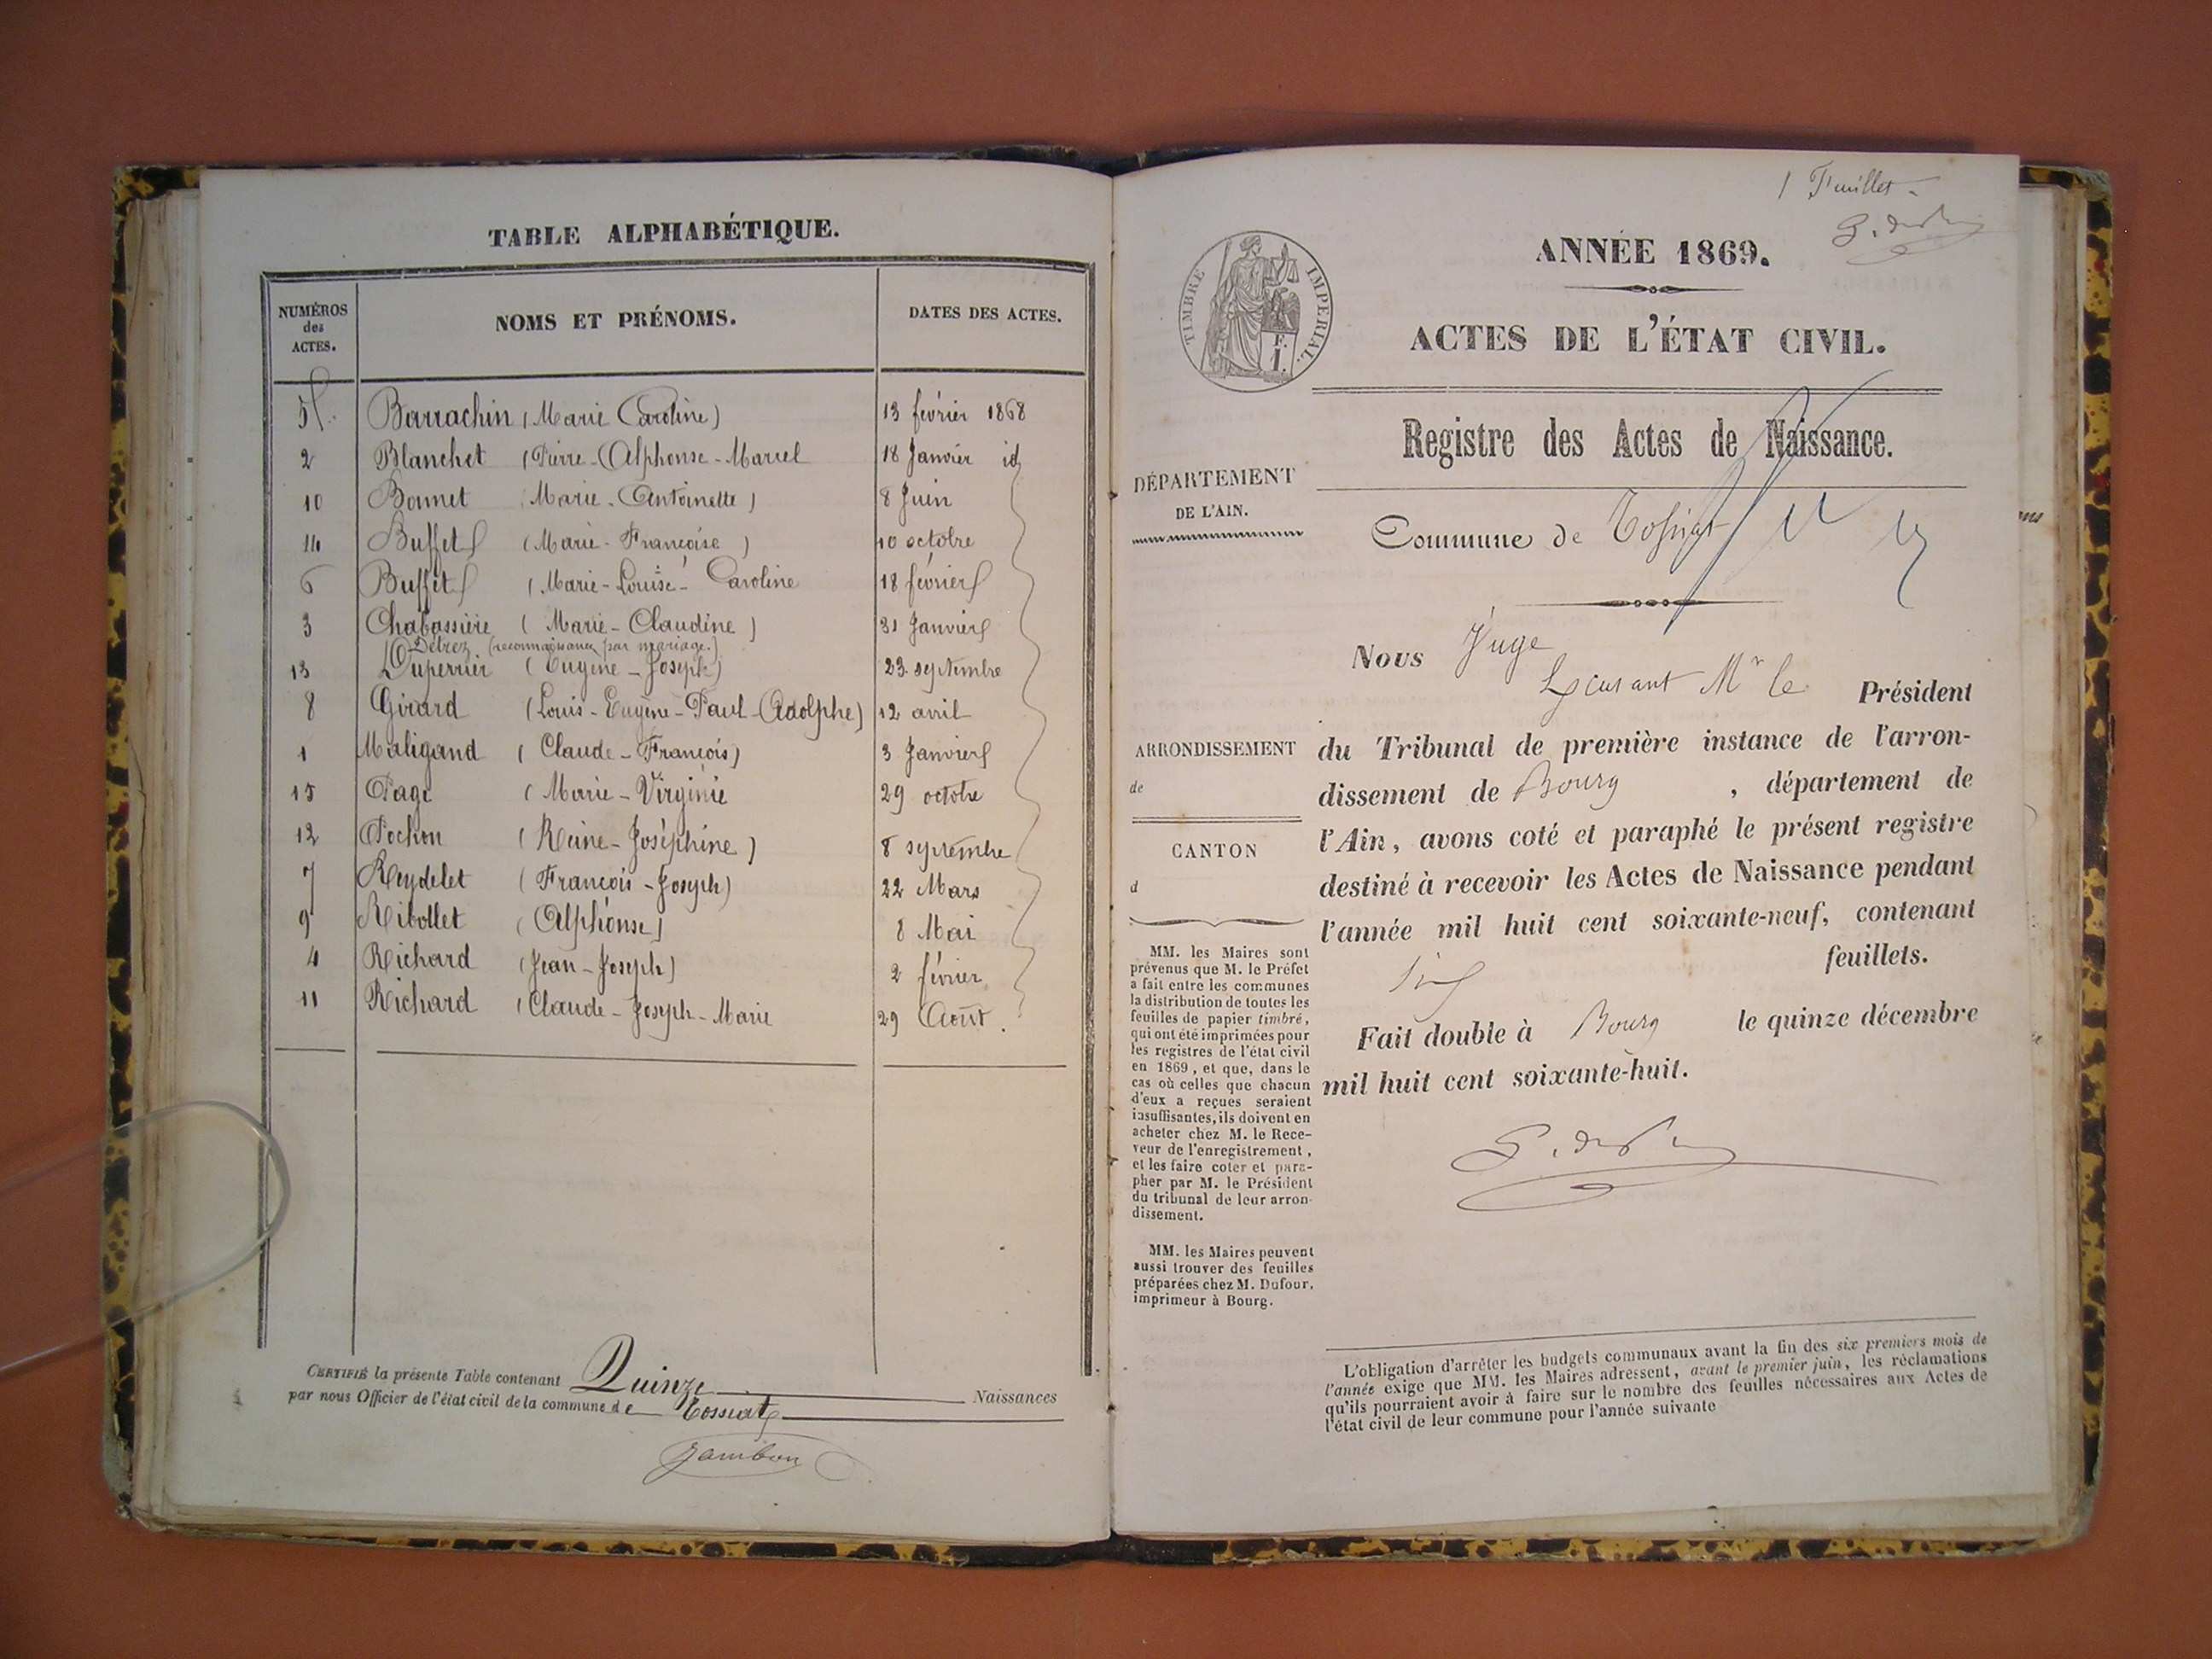 TABLE ALPHABÉTIQUE.
NUMÉROS des ACTES.
NOMS ET PRÉNOMS.
DATES DES ACTES.
5 Barrachin (Marie Caroline) 13 février 1868
2 Blanchet (Pierre-Alphonse-Marcel 18 Janvier id
10 Bonnet (Marie-Antoinette) 8 Juin
14 Buffet (Marie-Françoise) 10 octobre
6 Buffet (Marie-Louise-Caroline 18 février
3 Chabossière (Marie-Claudine) 31 Janvier
Débrez (reconnaissance par mariage.)
13 Duperrier (Eugène-Joseph) 23 septembre
8 Girard (Louis-Eugène-Paul-Adolphe) 12 avril
1 Maligand (Claude-François) 3 Janvier
15 Page (Marie-Virginie 29 octobre
12 Pochon (Reine-Joséphine) 8 septembre
7 Reydelet (François-Joseph) 22 Mars
9 Ribollet (Alphonse) 8 Mai
4 Richard (Jean-Joseph) 2 février
11 Richard (Claude-Joseph-Marie 29 Août.
CERTIFIÉ la présente Table contenant Quinze Naissances
par nous Officier de l'état civil de la commune de Tossiat
Jambon
1 Feuillet
TIMBRE IMPÉRIAL.
F.
1.
ANNÉE 1869.
ACTES DE L'ÉTAT CIVIL.
Registre des Actes de Naissance.
DÉPARTEMENT
DE L'AIN.
Commune de Tossiat
Nous Juge
Mr le Président
ARRONDISSEMENT
de
CANTON
d
du Tribunal de première instance de l'arron-
dissement de Bourg , département de
l'Ain, avons coté et paraphé le présent registre
destiné à recevoir les Actes de Naissance pendant
l'année mil huit cent soixante-neuf, contenant
feuillets.
Fait double à Bourg le quinze décembre
mil huit cent soixante-huit.
MM. les Maires sont
prévenus que M. le Préfet
a fait entre les communes
la distribution de toutes les
feuilles de papier timbré,
qui ont été imprimées pour
les registres de l'état civil
en 1869, et que, dans le
cas où celles que chacun
d'eux a reçues seraient
insuffisantes, ils doivent en
acheter chez M. le Rece-
veur de l'enregistrement,
et les faire coter et para-
pher par M. le Président
du tribunal de leur arron-
dissement.
MM. les Maires peuvent
aussi trouver des feuilles
préparées chez M. Dufour,
imprimeur à Bourg.
L'obligation d'arrêter les budgets communaux avant la fin des six premiers mois de
l'année exige que MM. les Maires adressent, avant le premier juin, les réclamations
qu'ils pourraient avoir à faire sur le nombre des feuilles nécessaires aux Actes de
l'état civil de leur commune pour l'année suivante